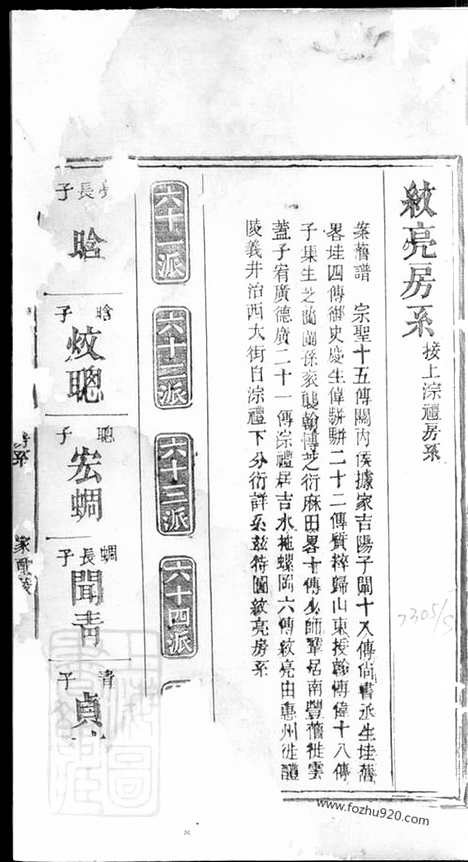 紋亮房系 接上淙禮房系
案舊譜 宗聖十五傳關內侯據家吉陽子闡十八傳尚書丞生珪舊
畧珪四傳御史
生偉駢駢二十二傳質粹歸山東授翰博偉十八傳
子集生芝蘭蘭孫衮襲翰博芝衍麻田畧十傳少師鞏居南豐舊徙雲
蓋子宥廣德廣二十一傳淙禮居吉水拖螺岡六傳紋亮由惠州徙醴
陵義井治西大街自淙禮下分衍詳系茲特圖紋亮房系
六十一派
六十二派
六十三派
六十四派
長子
晗
晗子
炆聰
聰子
宏蜩
蜩長子
聞青
青子
貞
7305/5
www.fozhu920.com